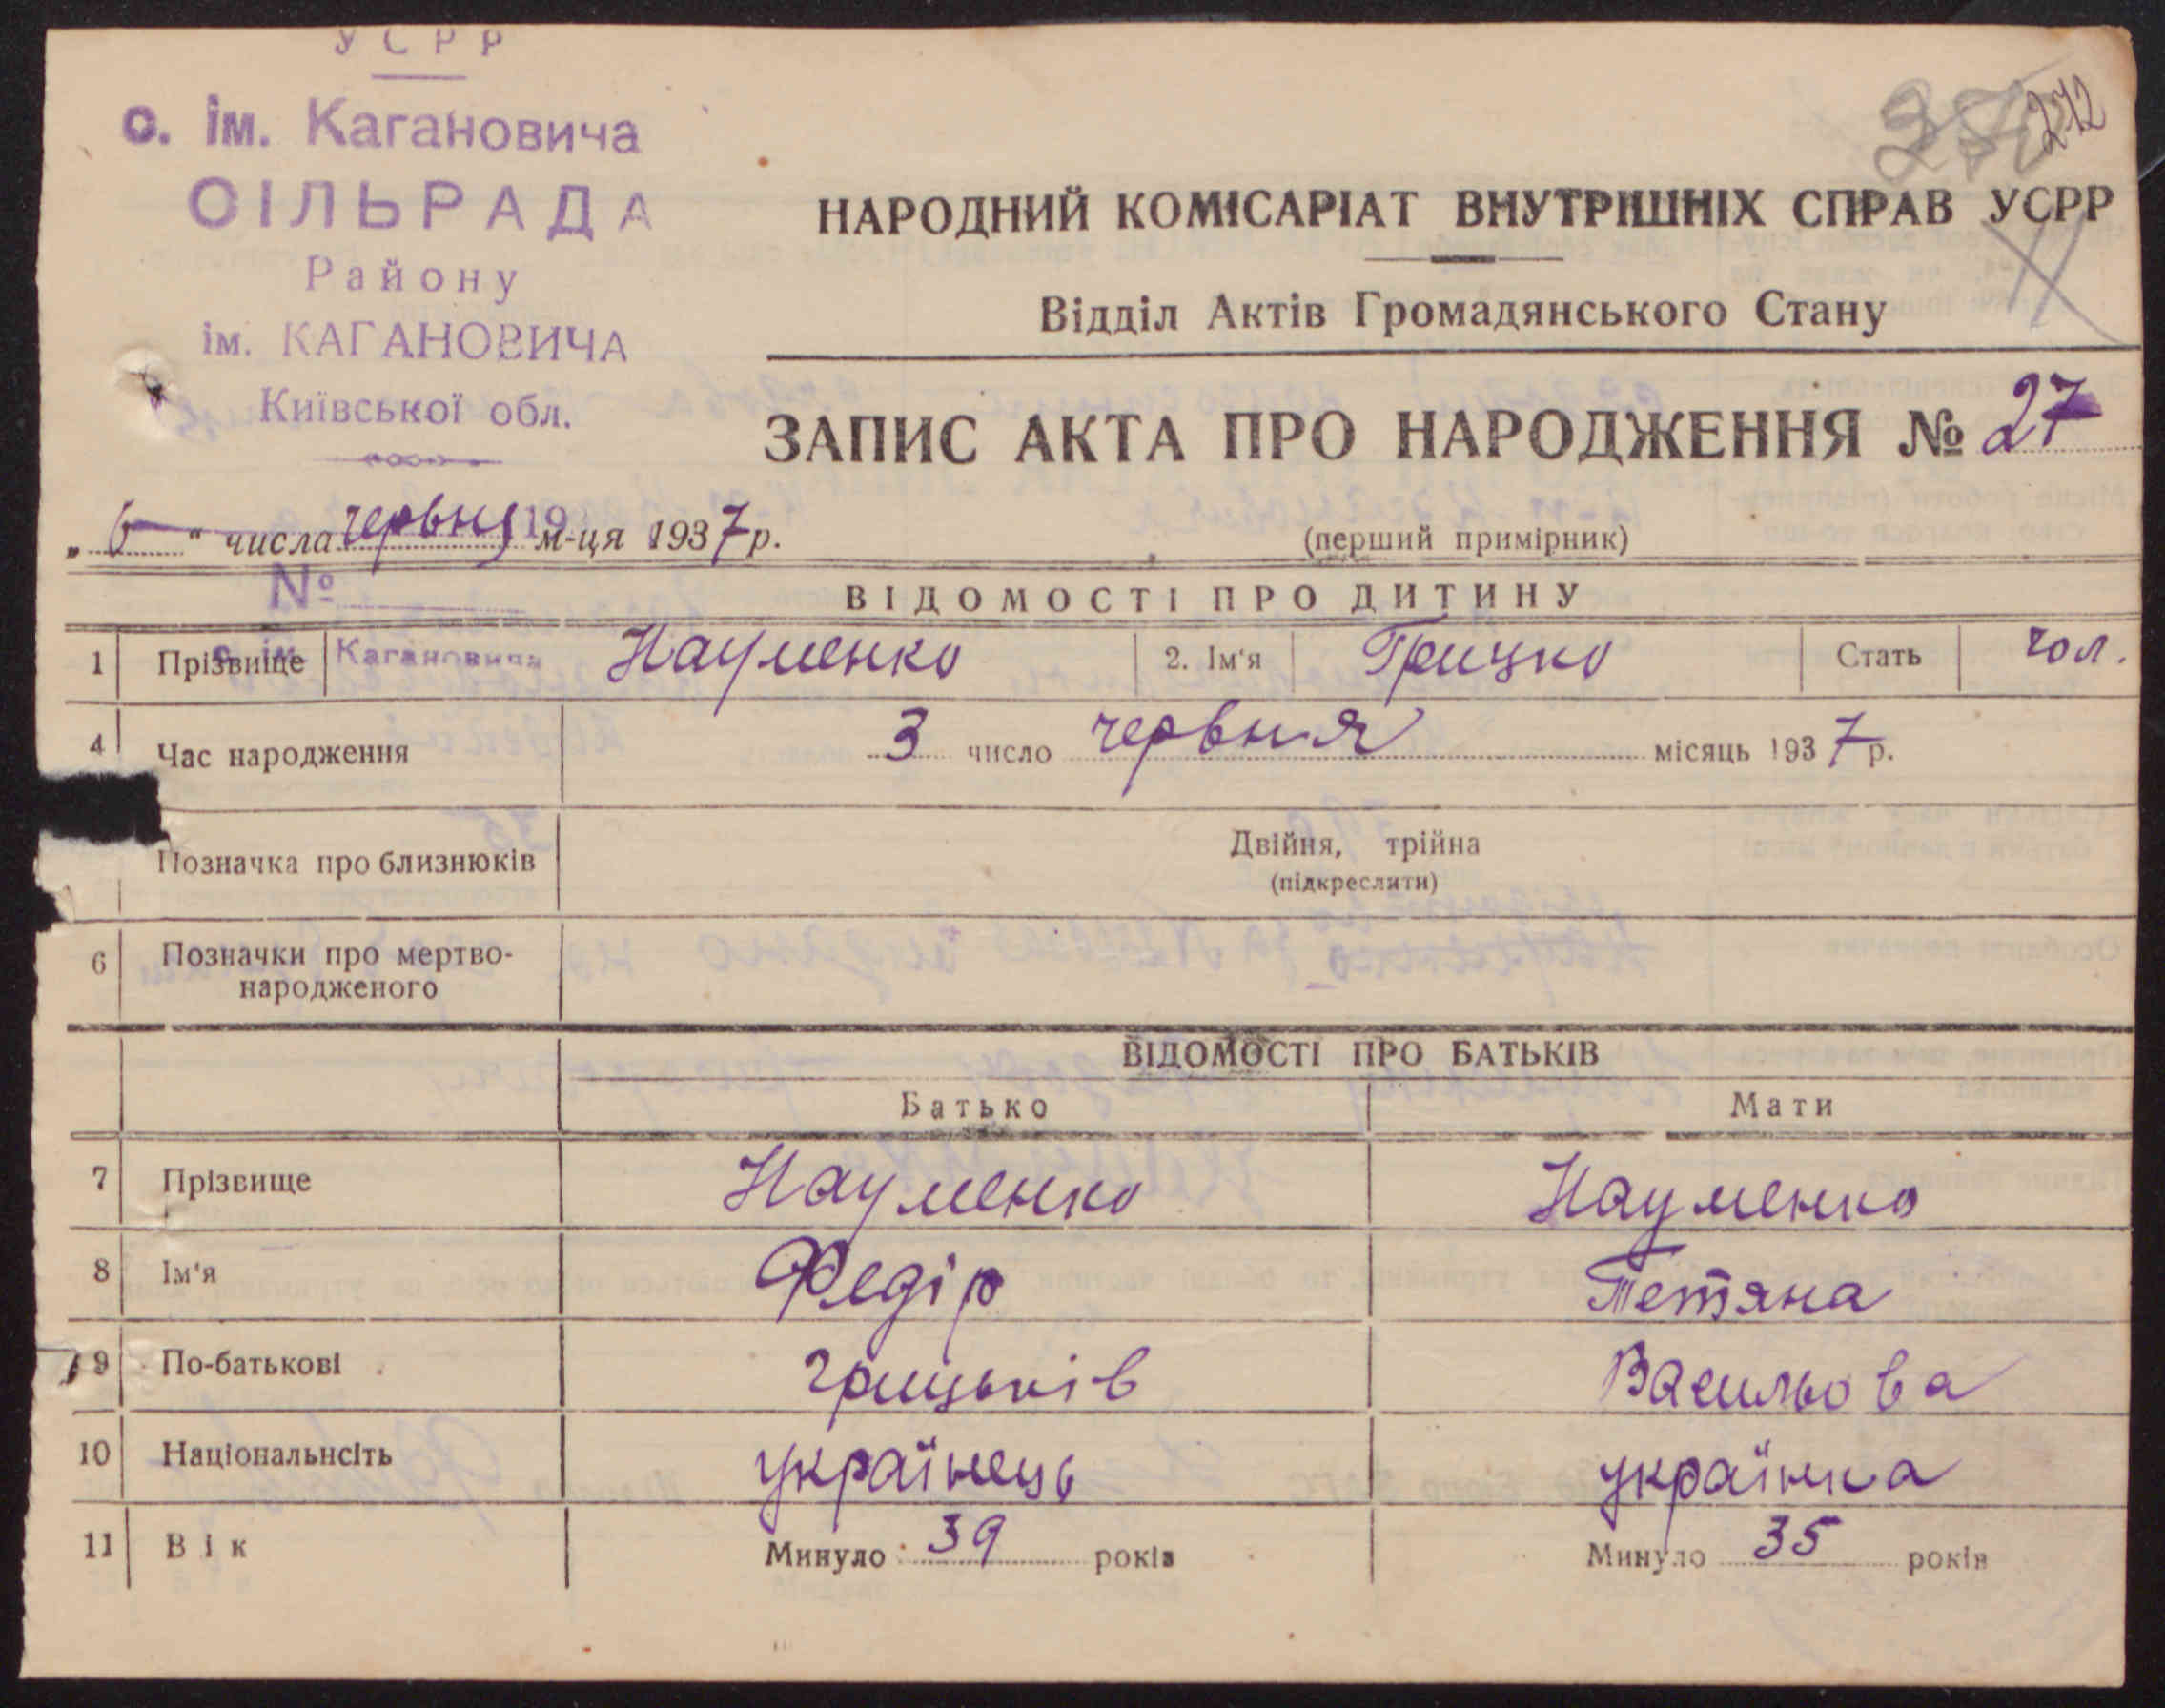 УСРР
с. ім. Кагановича
СІЛЬРАДА
Району
ім. КАГАНОВИЧА
Київської обл.
272
НАРОДНИЙ КОМІСАРІАТ ВНУТРІШНІХ СПРАВ УСРР
Відділ Актів Громадянського Стану
ЗАПИС АКТА ПРО НАРОДЖЕННЯ № 27
„ 6 " числа червня 19 м-ця 1937 р.
(перший примірник)
№
ВІДОМОСТІ ПРО ДИТИНУ
1 Прізвище с. ім. Кагановича Науменко 2. Ім'я Грицко Стать чол.
4 Час народження 3 число червня місяць 1937 р.
Позначка про близнюків Двійня, трійна
(підкреслити)
6 Позначки про мертво-
народженого
ВІДОМОСТІ ПРО БАТЬКІВ
Батько Мати
7 Прізвище Науменко Науменко
8 Ім'я Федір Тетяна
9 По-батькові Грицьків Васильова
10 Національнсіть українець українка
11 Вік Минуло 39 років Минуло 35 років